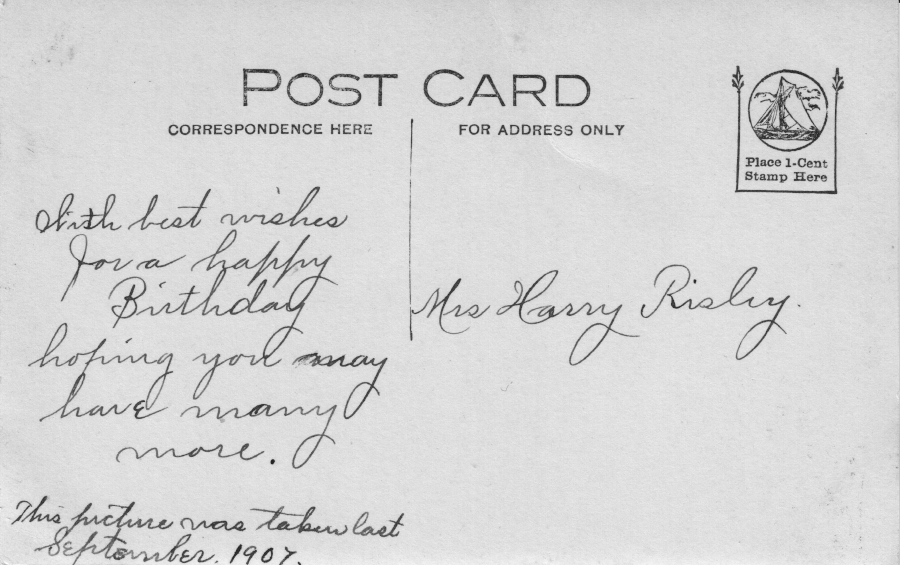 POST CARD
CORRESPONDENCE HERE
FOR ADDRESS ONLY
Place 1-Cent
Stamp Here
With best wishes
for a happy
Birthday
hoping you may
have many
more.
This picture was taken last
September. 1907.
Mrs Harry Risley.